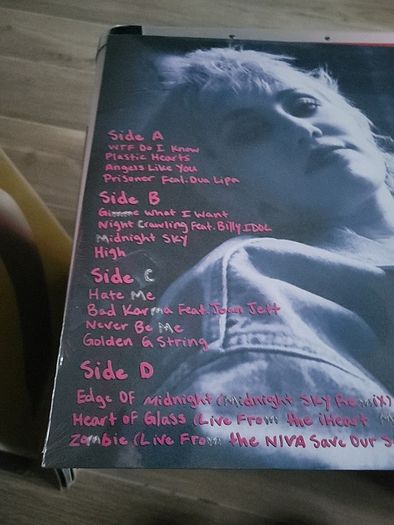 Side A
WTF Do I Know
Plastic Hearts
Angels Like You
Prisoner Feat. Dua Lipa
Side B
Gimme What I Want
Night Crawling Feat. Billy IDOL
Midnight SKY
High
Side C
Hate Me
Bad Karma Feat. Joan Jett
Never Be Me
Golden G String
Side D
Edge OF Midnight (Midnight SKY ReMiX)
Heart of Glass (Live From the iHeart
Zombie (Live From the NIVA Save Our